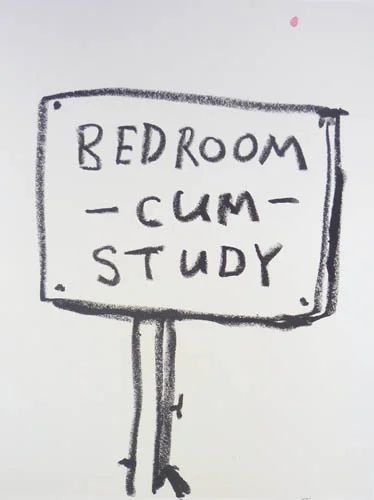 BEDROOM
-CUM-
STUDY